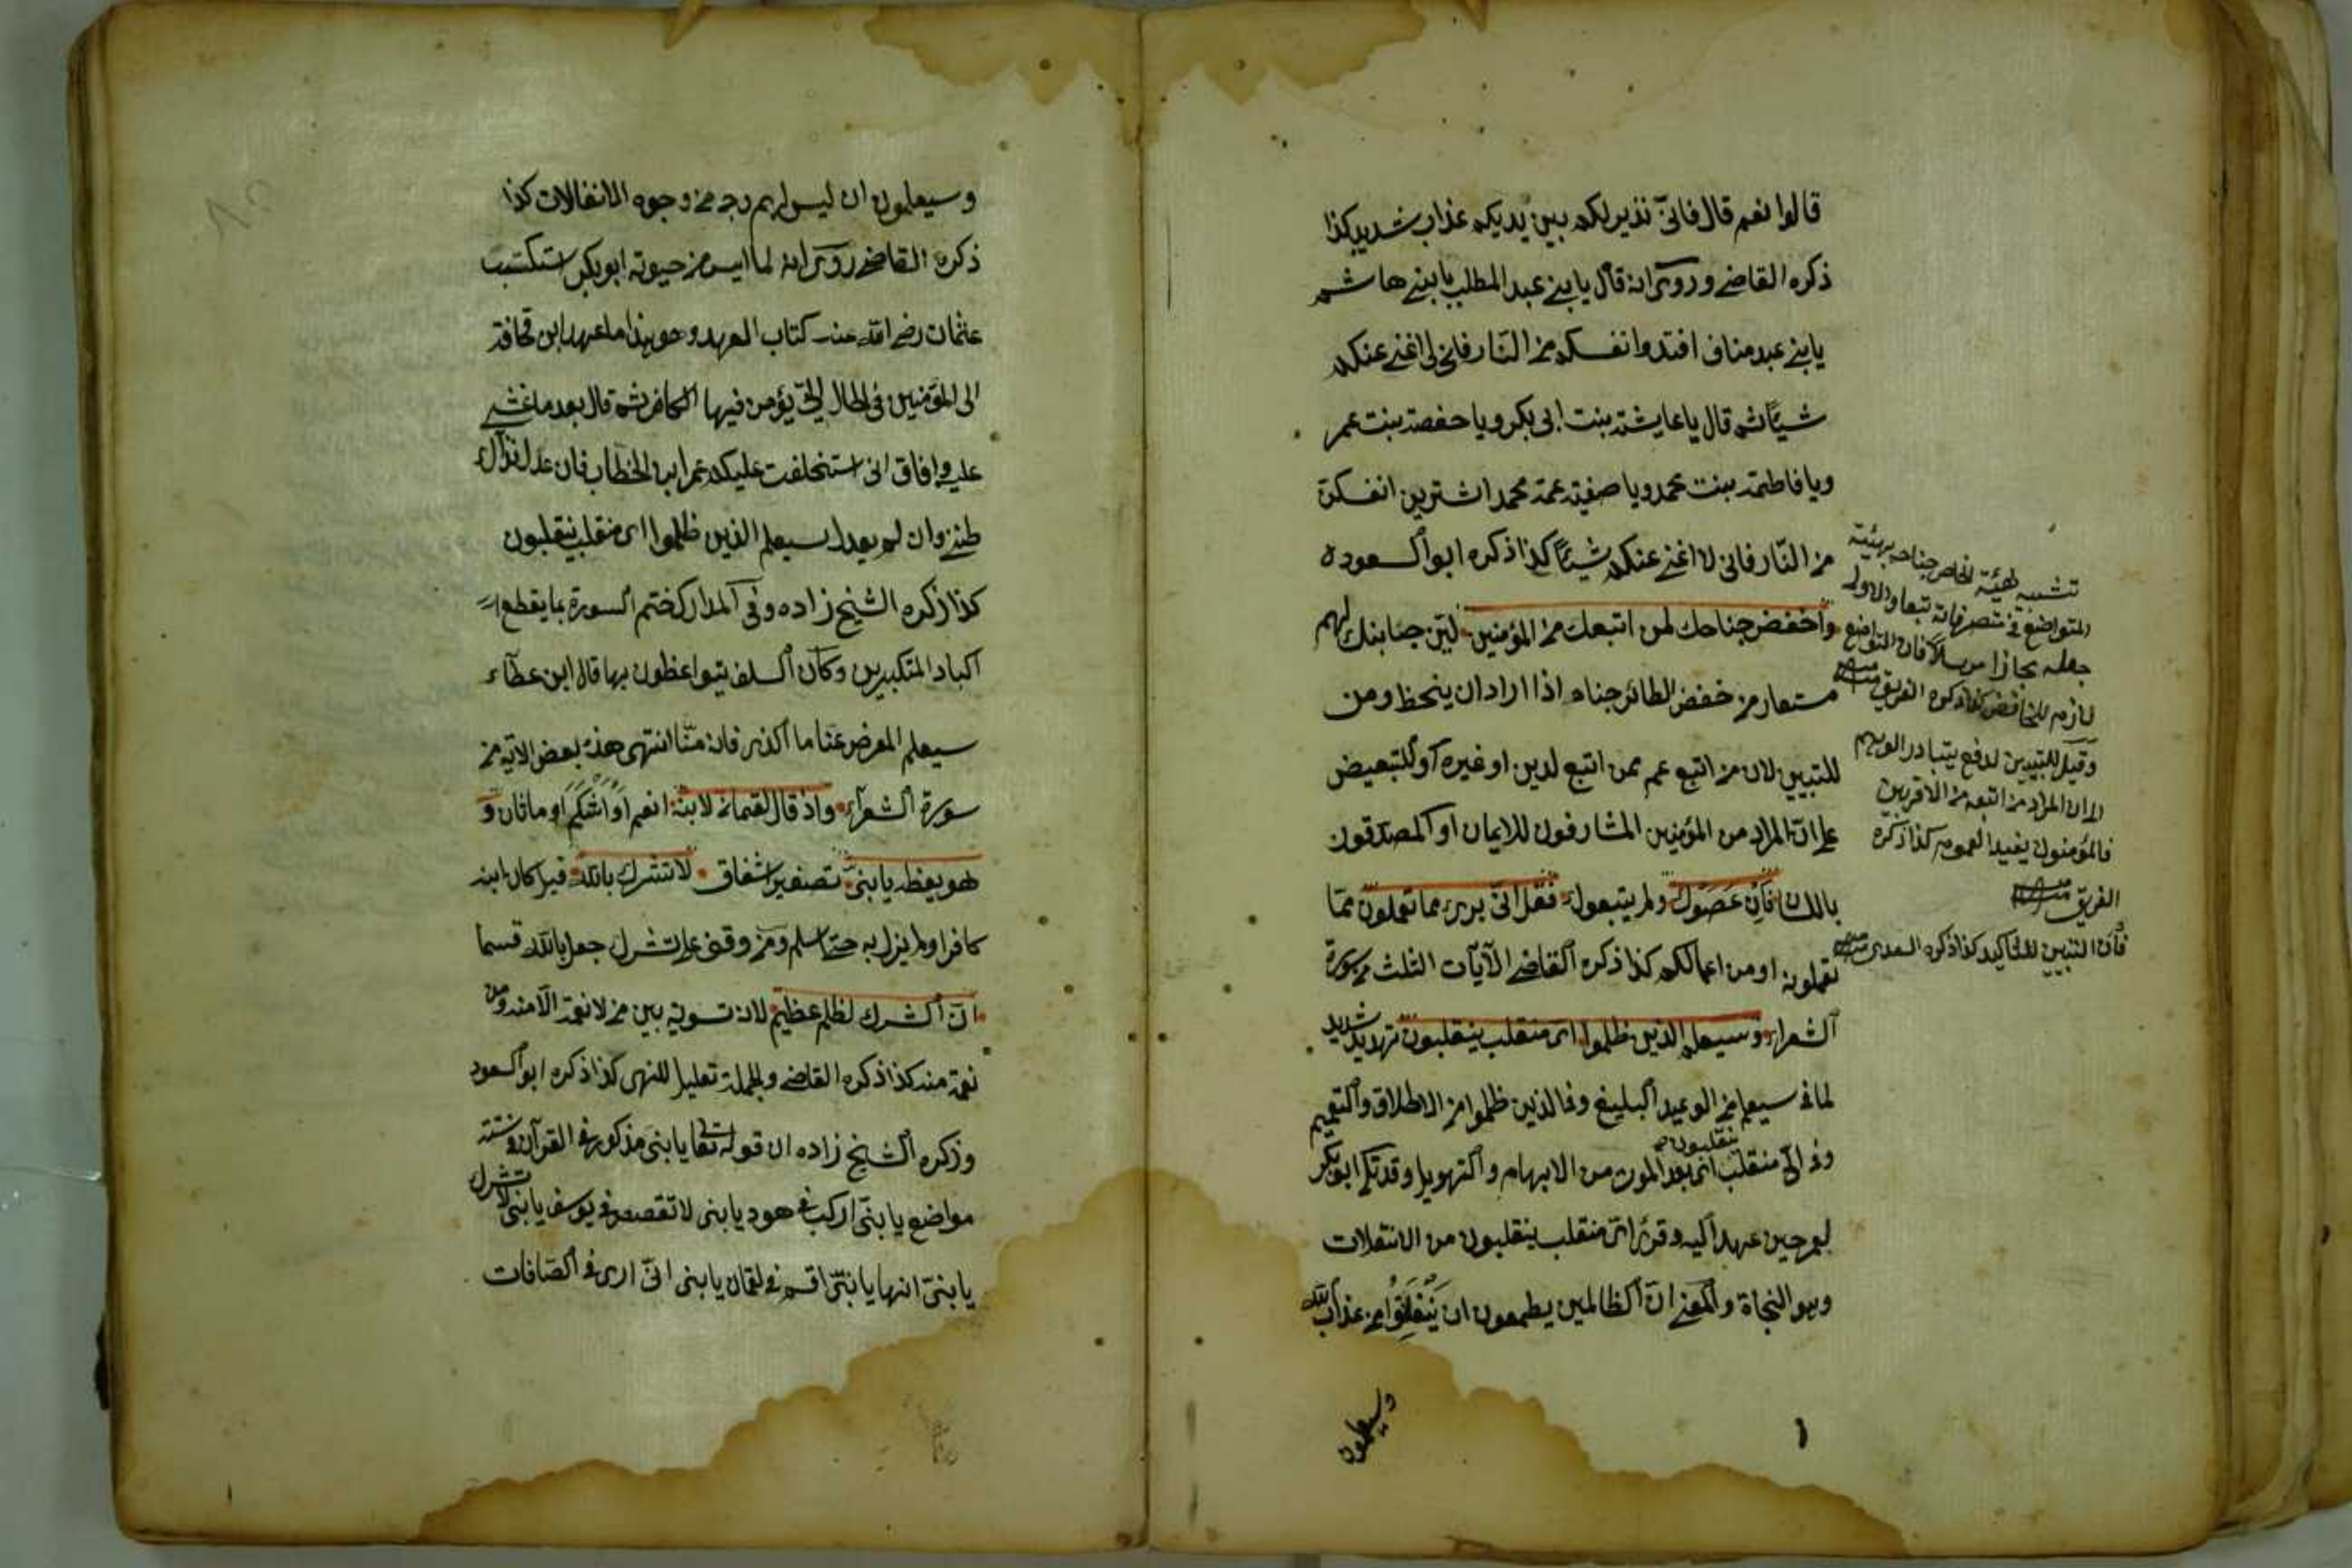 قالوا نعم قال فانّى نذير لكم بين يديكم عذاب شديد كذا
ذكره القاضى وروى انه قال يا بنى عبد المطلب يا بنى هاشم
يا بنى عبد مناف افتدوا انفسكم من النّار فانى لا اغنى عنكم
شيئا ثم قال يا عايشة بنت ابى بكر ويا حفصة بنت عمر
ويا فاطمة بنت محمد ويا صفية عمة محمد اشترين انفسكن
من النّار فانى لا اغنى عنكم شيئا كذا ذكره ابو السعود
واخفض جناحك لمن اتبعك من المؤمنين ليّن جنابك لهم
مستعار من خفض الطائر جناحه اذا اراد ان ينحط ومن
للتبيين لان من اتبع عم ممن اتبع لدين او غيره او للتبعيض
على انّ المراد من المؤمنين المشارفون للايمان او المصدقون
باللسان فان عَصَوْك ولم يتبعوك فقل انّى برىء مما تعملون ممّا
تعملونه او من اعمالكم كذا ذكره القاضى الآيات الثلث من سورة
الشعراء وسيعلم الذين ظلموا اى منقلب ينقلبون تهديد شديد
لما فى سيعلم من الوعيد البليغ وفى الذين ظلموا من الاطلاق والتعميم
وفى اىّ منقلب ينقلبون اى بعد الموت من الابهام والتهويل وقد تلا ابو بكر
لعمر حين عهد اليه وقرئ اى منفلت ينفلتون من الانفلات
وهو النجاة والمعنى انّ الظالمين يطمعون ان يَنْفلِتُوا من عذاب الله
وسيعلمون
تشبيه لهيئة الخافض جناحه بهيئة
المتواضع فى تصرفاته تبعا والاولى
جعله مجازا مرسلا فان التواضع
لازم للخافض كذا ذكره الغريق منه
وقيل للتبيين لدفع يتبادر الوهم
الى ان المراد من اتبعه من الاقربين
فالمؤمنون يفيد العموم كذا ذكره
الغريق منه
فان التبيين للتأكيد كذا ذكره السعدى منه
وسيعلمون ان ليس لهم وجه من وجوه الانفلات كذا
ذكره القاضى روى انه لما ايس من حيوته ابو بكر استكتب
عثمان رضى الله عنه كتاب العهد وهو هذا ما عهد ابن قحافة
الى المؤمنين فى الحال التى يؤمن فيها الكافر ثم قال بعد ما غشى
عليه وافاق انى استخلفت عليكم عمر ابن الخطاب فان عدل فذاك
ظنى وان لم يعدل سيعلم الذين ظلموا اى منقلب ينقلبون
كذا ذكره الشيخ زاده وفى المدارك ختم السورة بما يقطع
اكباد المتكبرين وكان السلف يتواعظون بها قال ابن عطاء
سيعلم المعرض عنّا ما الذى فاته منّا انتهى هذه بعض الآية من
سورة الشعراء واذ قال لقمان لابنه انعم او اشكم او ماثان و
هو يعظه يا بنىّ تصغير اشفاق لا تشرك بالله قيل كان ابنه
كافرا ولم يزل به حتى اسلم ومن وقف على تشرك جعل بالله قسما
انّ الشرك لظلم عظيم لانه تسوية بين من لا نعمة الا منه ومن لا
نعمة منه كذا ذكره القاضى والجملة تعليل للنهى كذا ذكره ابو السعود
وذكره الشيخ زاده ان قوله تعالى يا بنى مذكور فى القرآن فى ستة
مواضع يا بنىّ اركب فى هود يا بنى لا تقصص فى يوسف يا بنى لا تشرك
يا بنىّ انها يا بنىّ اقم فى لقمان يا بنى انّى ارى فى الصّافات